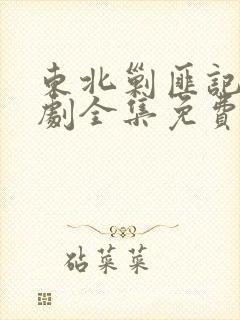 東北剿匪記
劇全集免費
砧菜菜